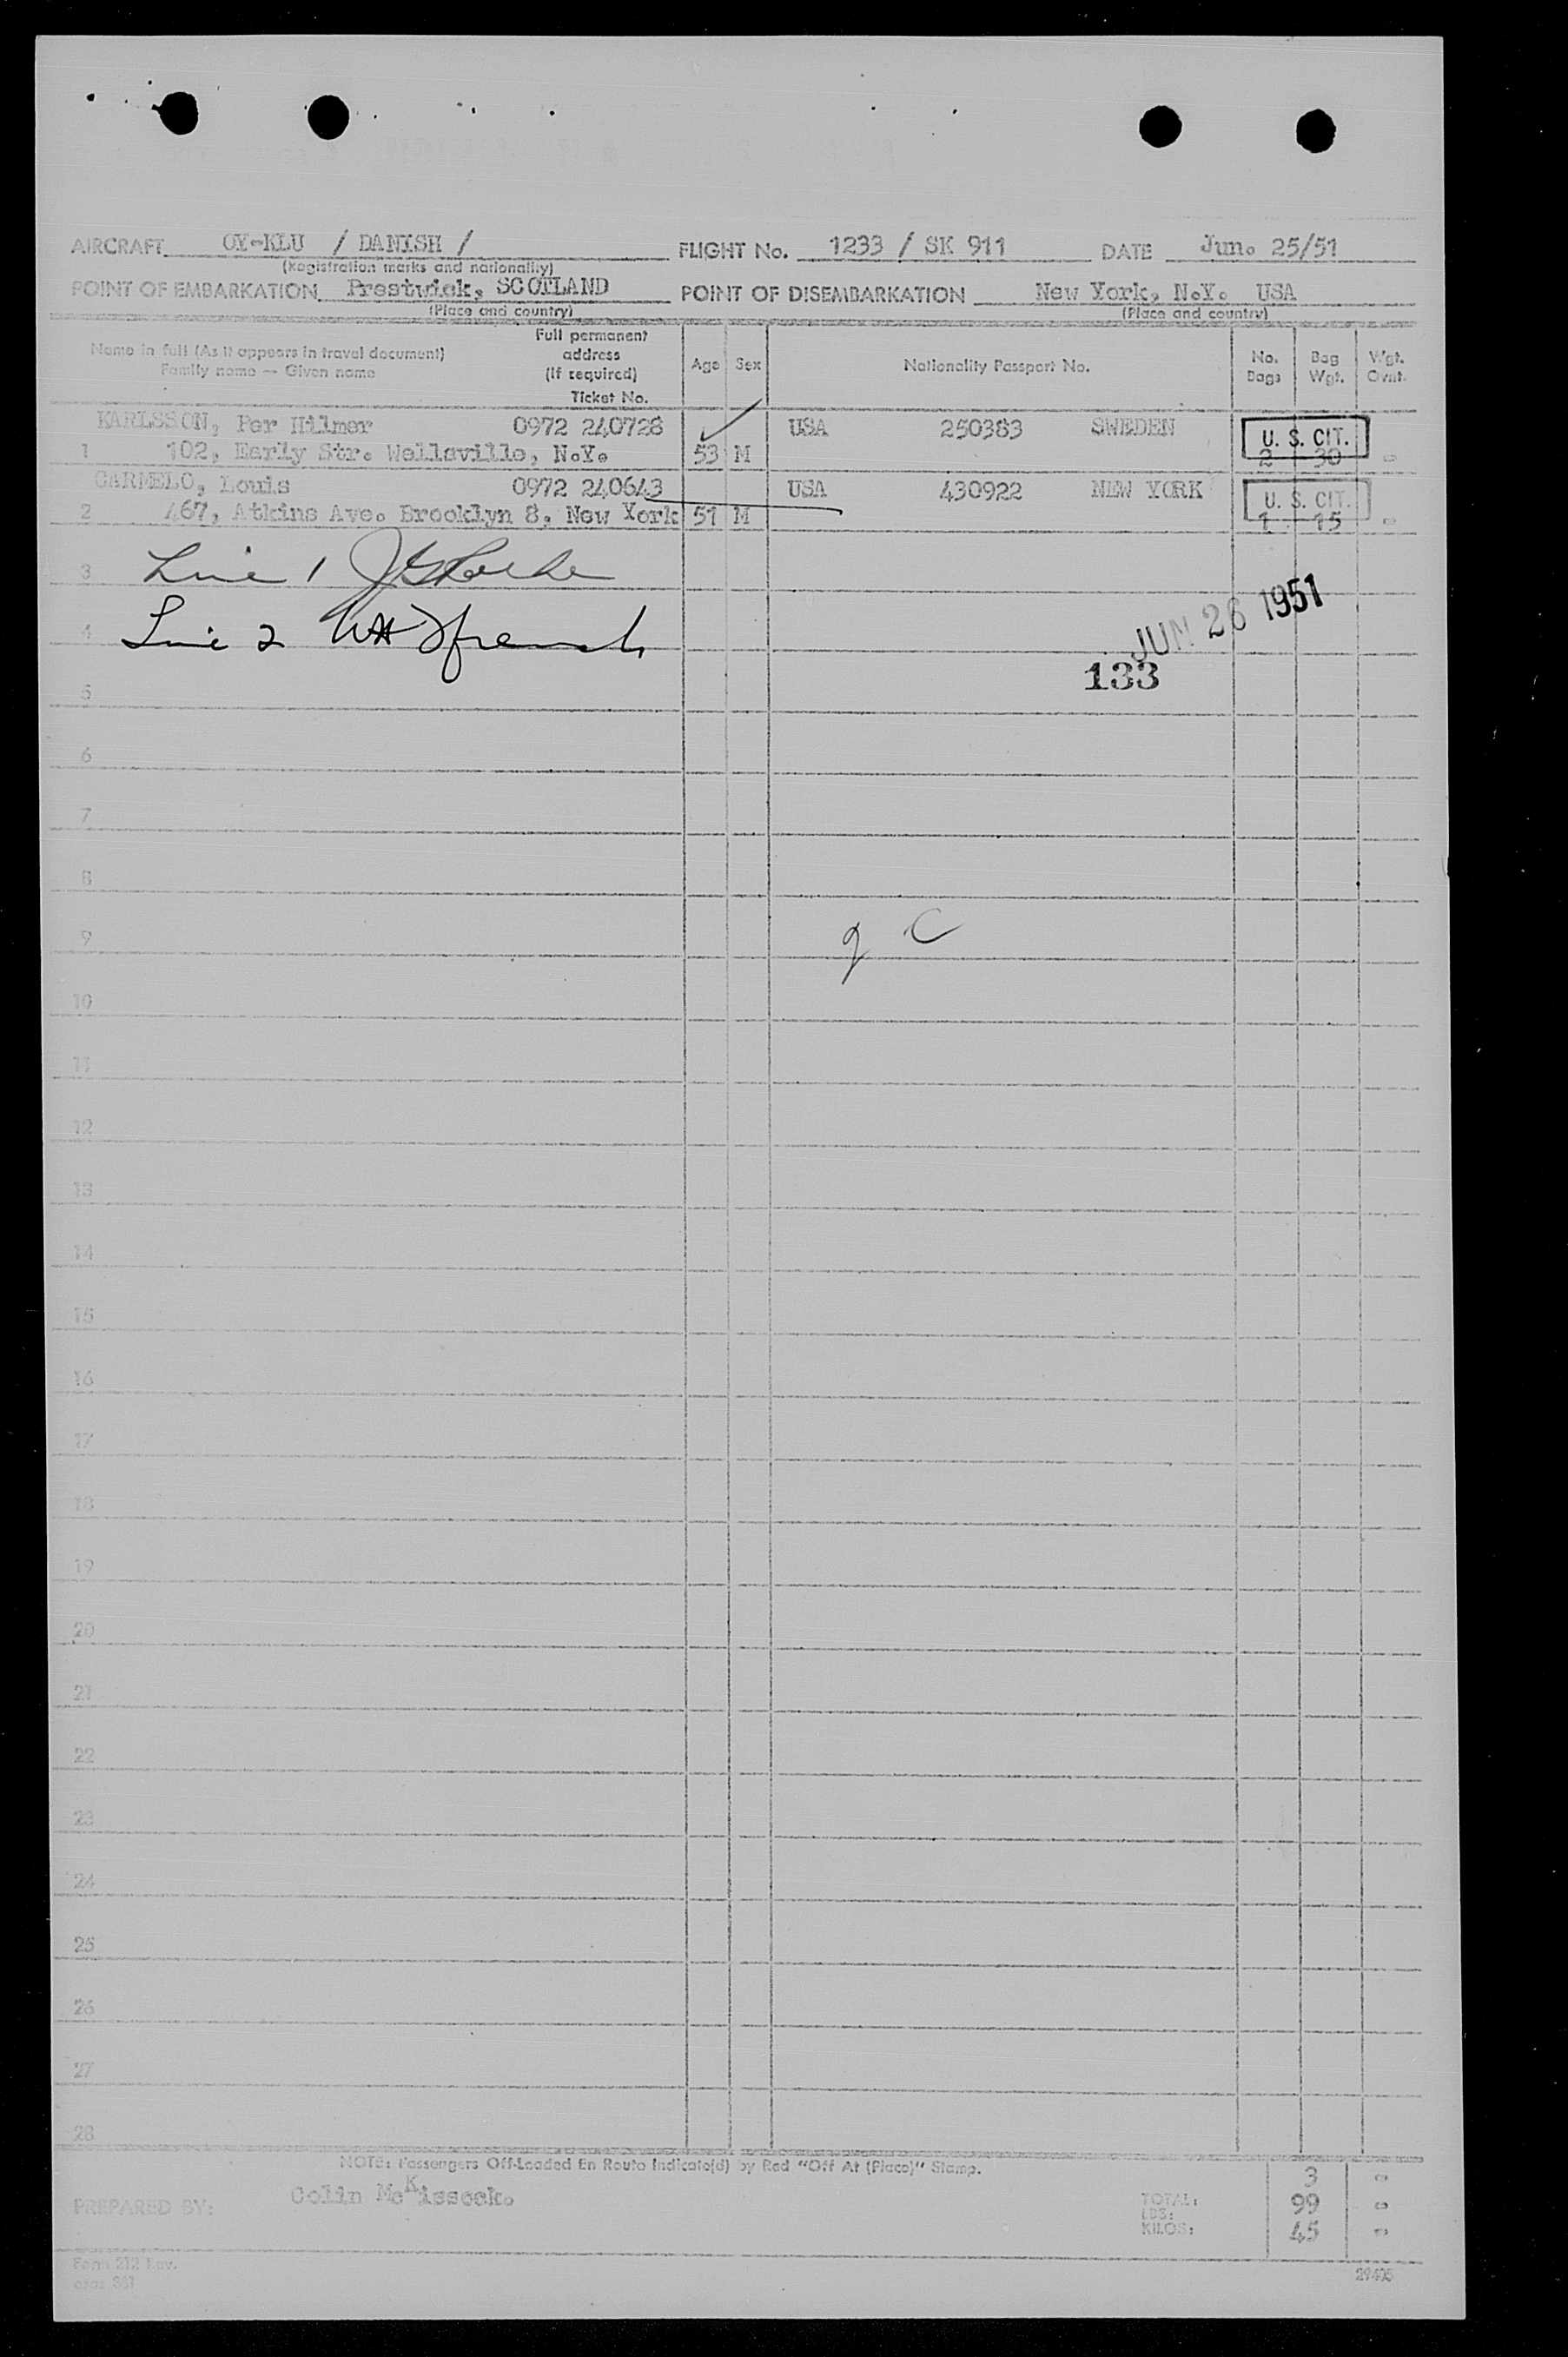 AIRCRAFT OY-KLU / DANISH / FLIGHT No. 1233 / SK 911 DATE Jun. 25/51
(Registration marks and nationality)
POINT OF EMBARKATION Prestwick, SCOTLAND POINT OF DISEMBARKATION New York, N.Y. USA
(Place and country) (Place and country)
Name in full (As it appears in travel document)
Family name — Given name
Full permanent
address
(If required)
Ticket No.
Age Sex Nationality Passport No. No. Bags Bag Wgt. Wgt. Ovwt.
KARLSSON, Per Hilmer 0972 240728 USA 250383 SWEDEN U. S. CIT.
1 102, Early Str. Wellsville, N.Y. 53 M 2 30
CARMELO, Louis 0972 240643 USA 430922 NEW YORK U. S. CIT.
2 467, Atkins Ave. Brooklyn 8, New York 51 M 1 15
3 Line 1
4 Line 2
JUN 26 1951
133
5
6
7
8
9
10
11
12
13
14
15
16
17
18
19
20
21
22
23
24
25
26
27
28
NOTE: Passengers Off-Loaded En Route Indicate(d) by Red "Off At (Place)" Stamp.
PREPARED BY: Colin McKissock.
3
TOTAL:
LBS: 99
KILOS: 45
Form 212 Rev.
29405